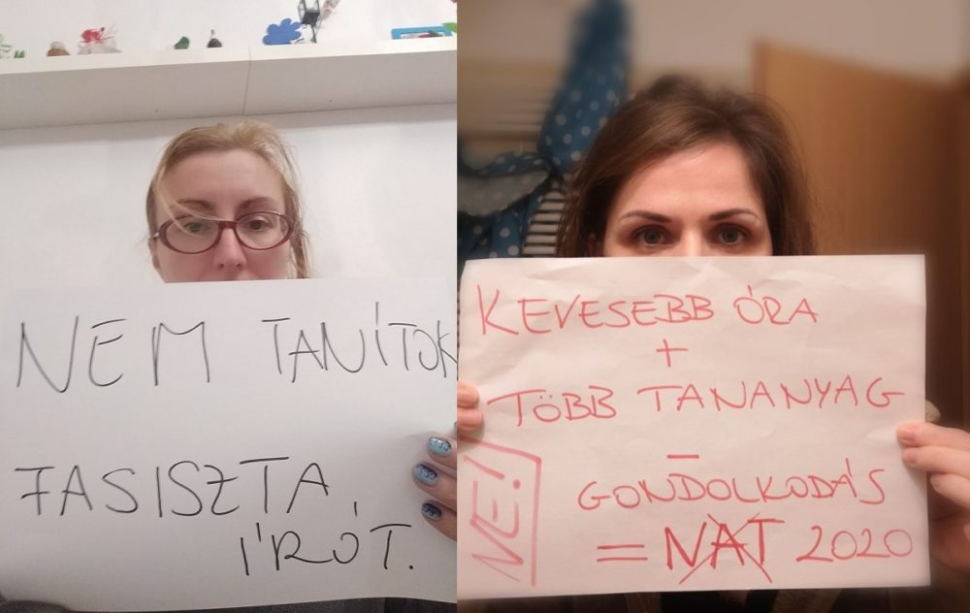 NEM TANÍTOK
FASISZTA
ÍRÓT.
KEVESEBB ÓRA
+
TÖBB TANANYAG
–
GONDOLKODÁS
= NAT 2020
NE!